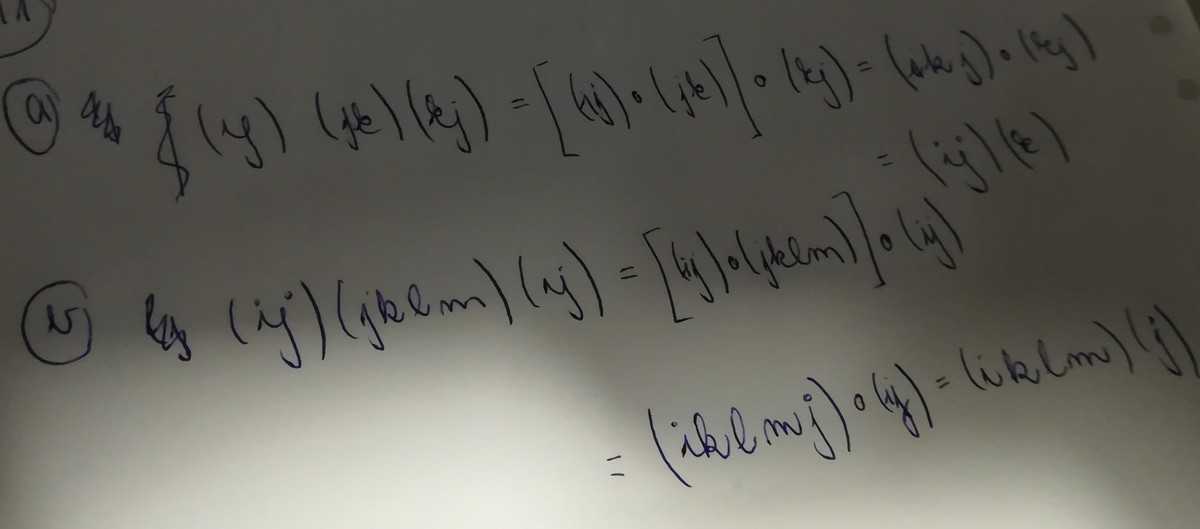 a) (ij) (jk)(kj) = [(ij)∘(jk)]∘(kj) = (ikj)∘(kj)
= (ij)(k)
(ij)(jklm)(ij) = [(ij)∘(jklm)]∘(ij)
= (iklmj)∘(ij) = (iklm)(j)